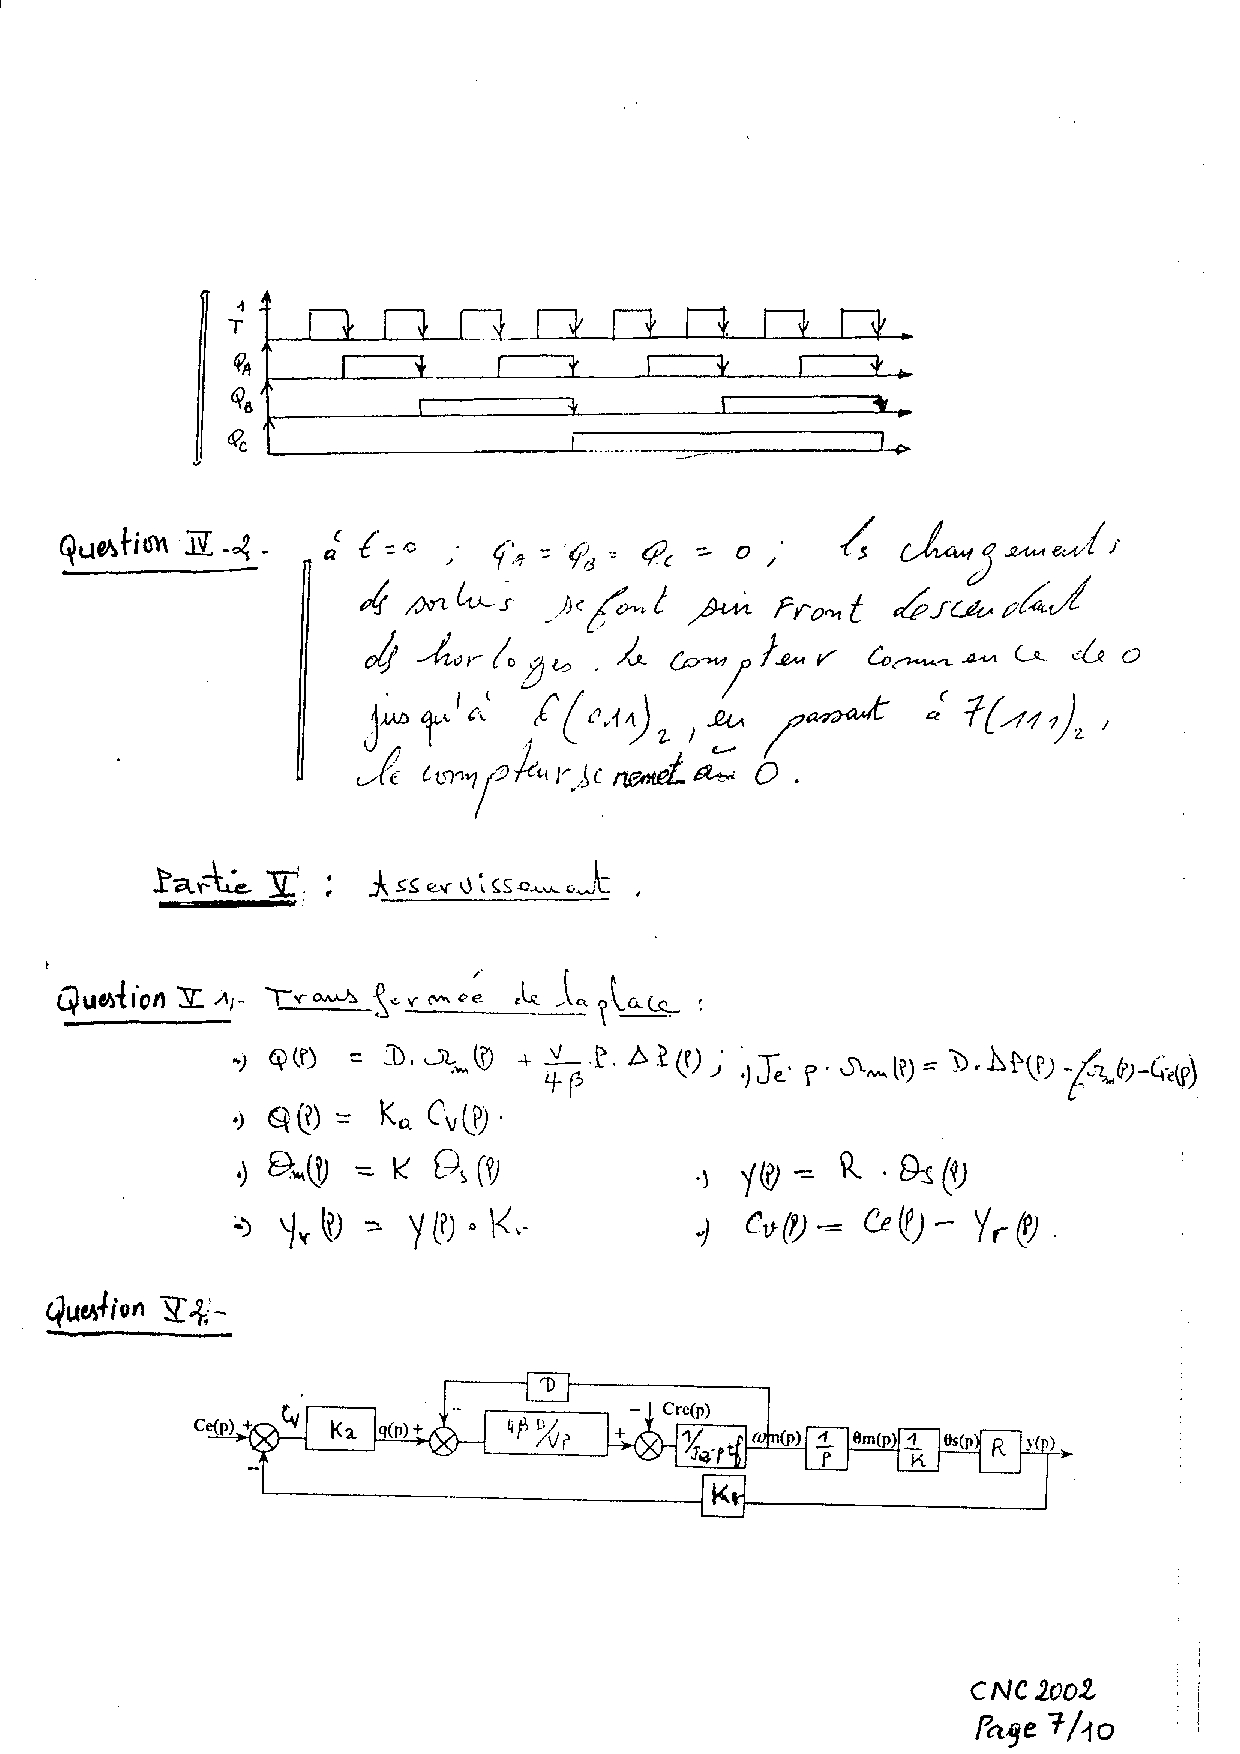 1
T
QA
QB
QC
Question IV-2- à t=0 ; QA = QB = QC = 0 ; ls changements
ds sorties se font sur Front descendant
ds horloges. le compteur commence de 0
jusqu'à 6(011)2, en passant à 7(111)2,
le compteur se remet à 0.
Partie V : Asservissement.
Question V 1,- Transformée de laplace :
.) Q(P) = D. Ωm(P) + V/4β . P. ΔP(P) ; .) Je. p. Ωm(P) = D. ΔP(P) - fΩm(P) - Cre(P)
.) Q(P) = Ka Cv(P).
.) θm(P) = K θs(P) .) Y(P) = R . θs(P)
.) Yr(P) = Y(P) . Kr .) Cv(P) = Ce(P) - Yr(P).
Question V 2,-
D
Ce(p) + Cv Ka q(p) + - 4βD/Vp + - Cre(p) 1/Je.p+f ωm(p) 1/P θm(p) 1/K θs(p) R y(p)
- Kr
CNC 2002
Page 7/10